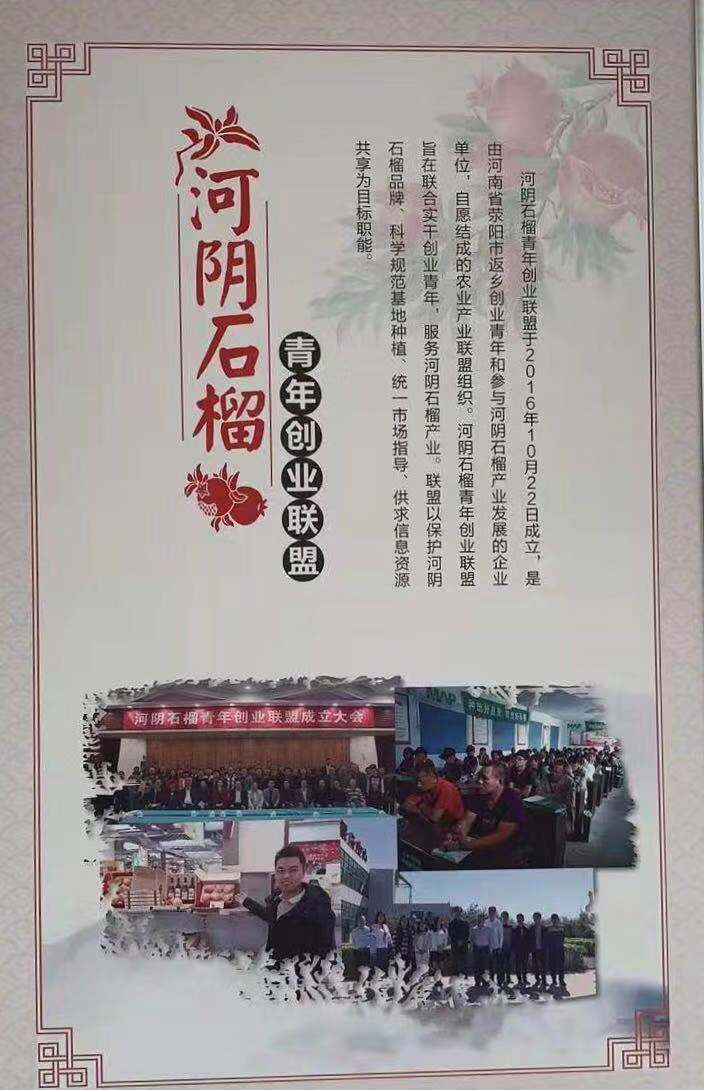 河阴石榴
青年创业联盟
河阴石榴青年创业联盟于2016年10月22日成立，是
由河南省荥阳市返乡创业青年和参与河阴石榴产业发展的企业
单位，自愿结成的农业产业联盟组织。河阴石榴青年创业联盟
旨在联合实干创业青年，服务河阴石榴产业。联盟以保护河阴
石榴品牌、科学规范基地种植、统一市场指导、供求信息资源
共享为目标职能。
河阴石榴青年创业联盟成立大会
MAP